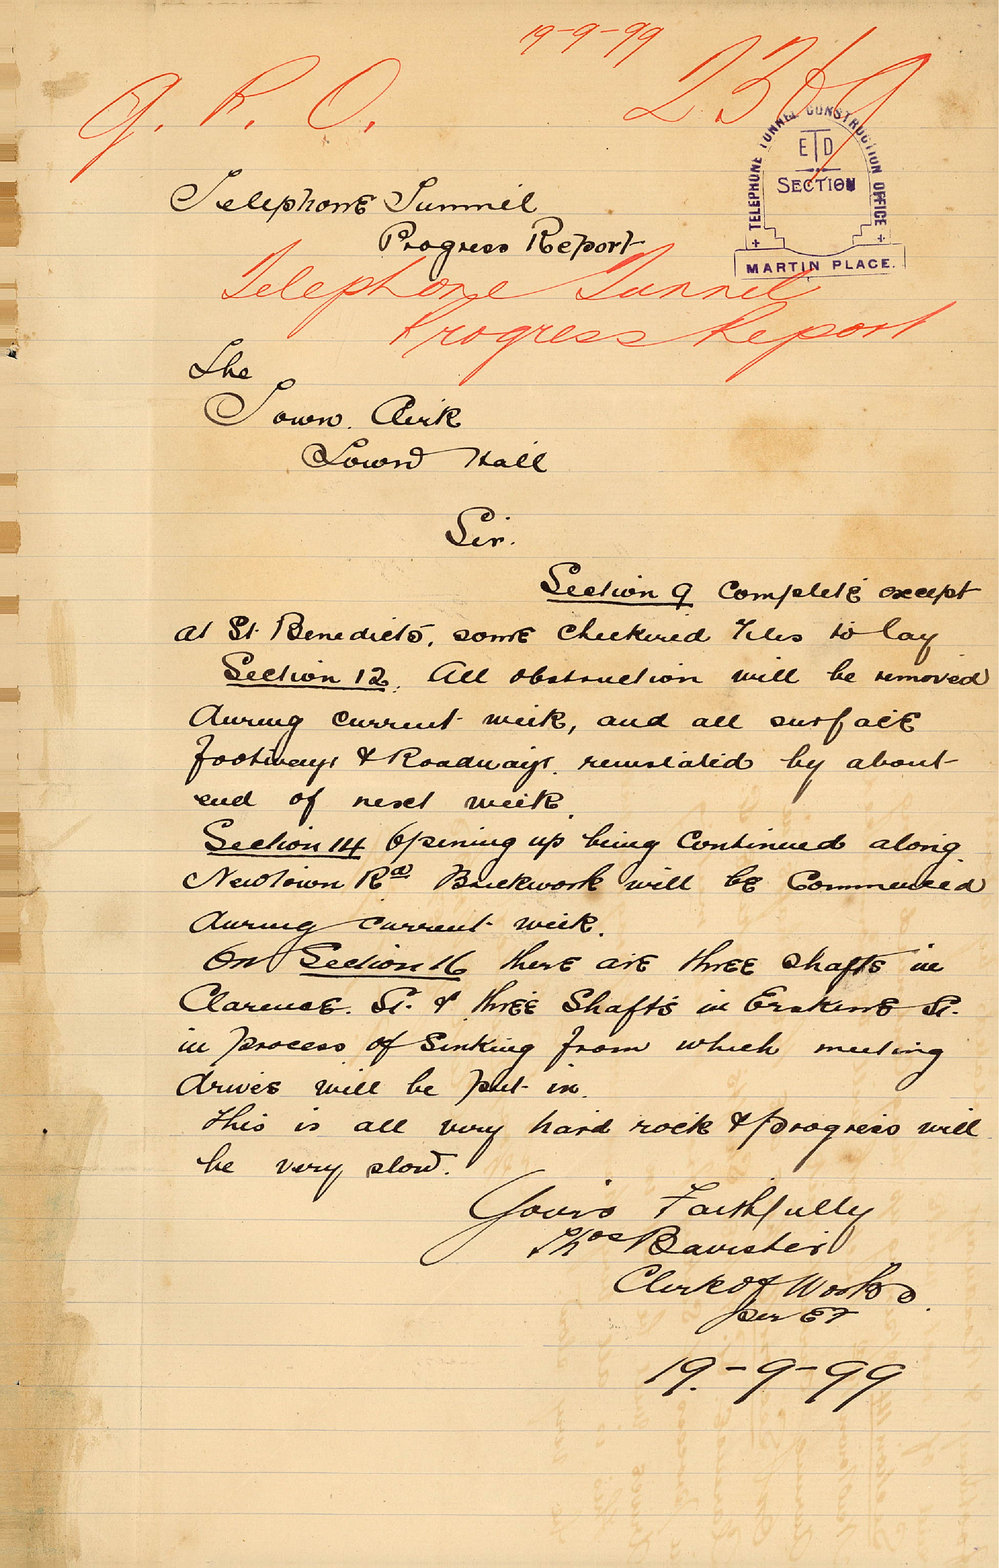 19-9-99
G. P. O. 2369
TELEPHONE TUNNEL CONSTRUCTION OFFICE
ETD
SECTION
MARTIN PLACE.
Telephone Tunnel
Progress Report
Telephone Tunnel
Progress Report
The
Town Clerk
Town Hall
Sir.
Section 9 Complete except
at St. Benedicts, some checkered Tiles to lay
Section 12. All obstruction will be removed
during current week, and all surface
footways & Roadways. reinstated by about
end of next week.
Section 14 Opening up being Continued along
Newtown Rd Brickwork will be Commenced
during current week.
On Section 16 there are three shafts in
Clarence. St. & three Shafts in Erskine St.
in process of Sinking from which meeting
drives will be put in.
This is all very hard rock & progress will
be very slow.
Yours Faithfully
Thos Bavister
Clerk of Works.
per ET
19-9-99